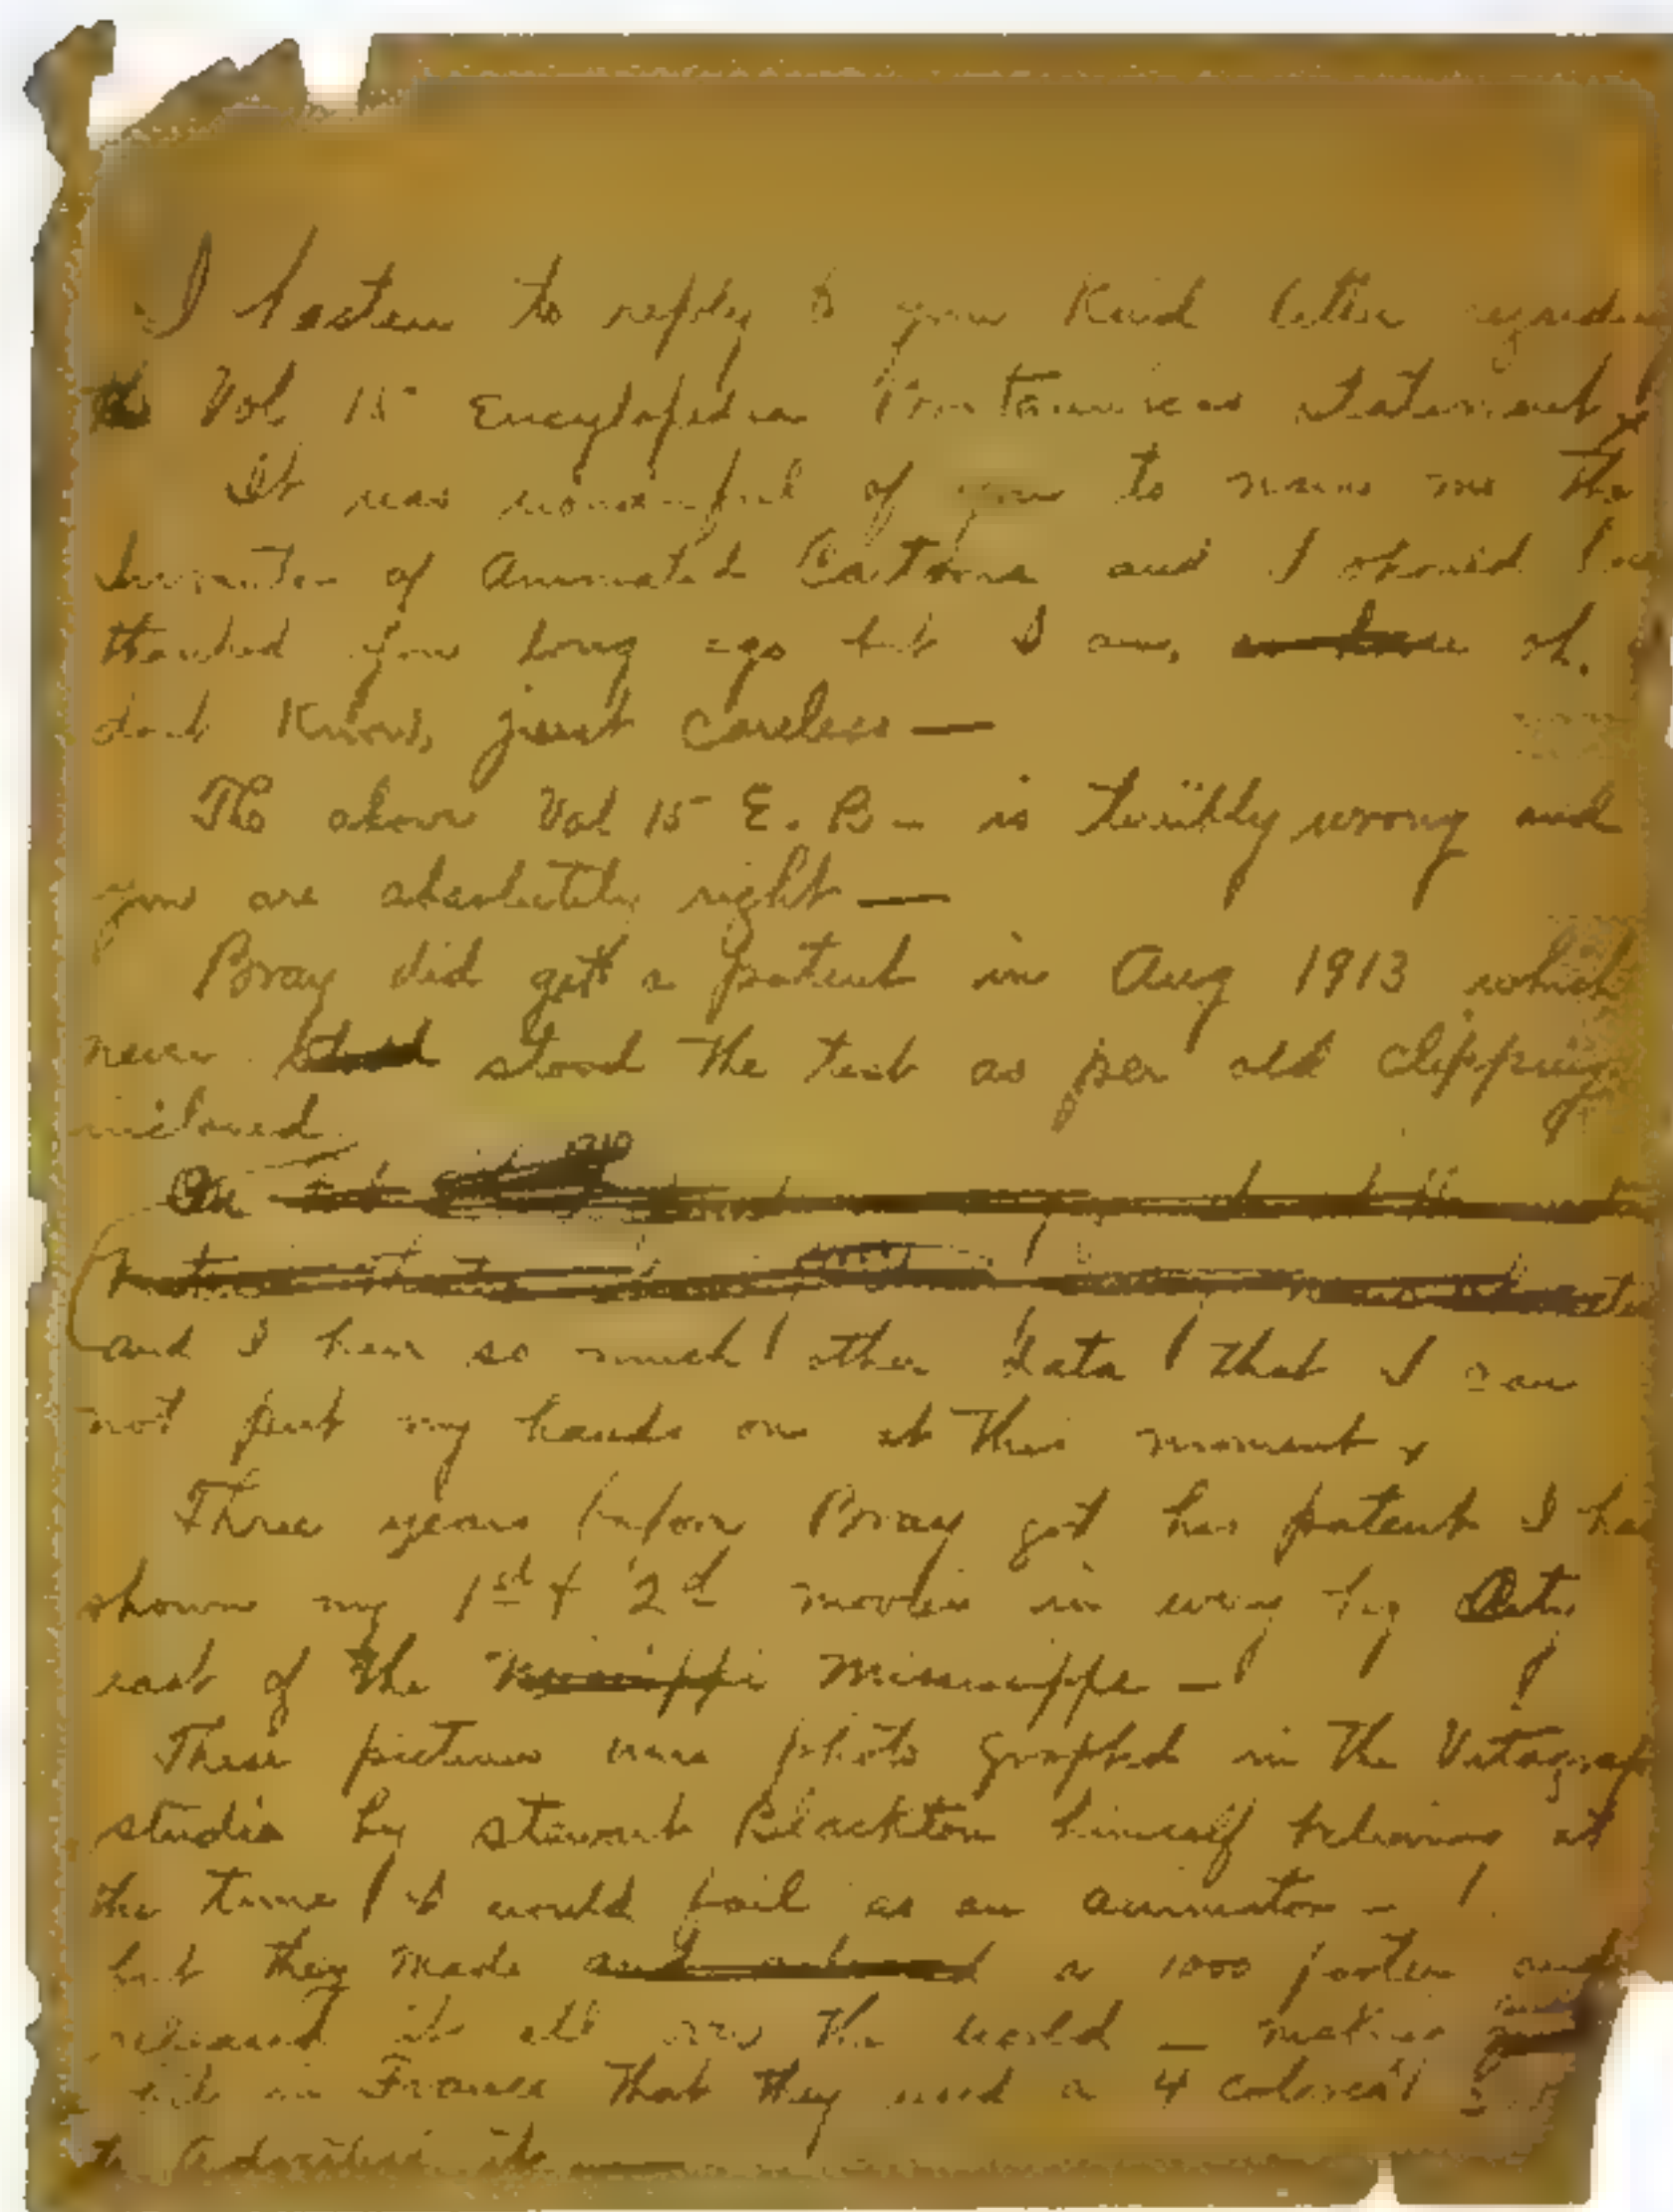 I hasten to reply to your kind letter
the Vol 15 Encyclopedia Britannica statement
It was wonderful of you to name me the
Inventor of Animated Cartoons and I should
thanked you long ago but I am, oh,
dont know, just careless —
The above Vol 15 E. B - is terribly wrong and
you are absolutely right —
Bray did get a patent in Aug 1913 which
never stood the test as per old clipping
inclosed
and I have so much other data that I can
not put my hands on at this moment.
Three years before Bray got his patent I had
shown my 1st & 2d movies in every big City
east of the Mississippi Mississippi —
These pictures were photo graphed in the Vitagraph
studio by Steward Blackton himself believing at
the time I would fail as an animator -
but they made a 1000 footer and
released it all over the world — making
hit in France that they used a 4 colored
to advertise it